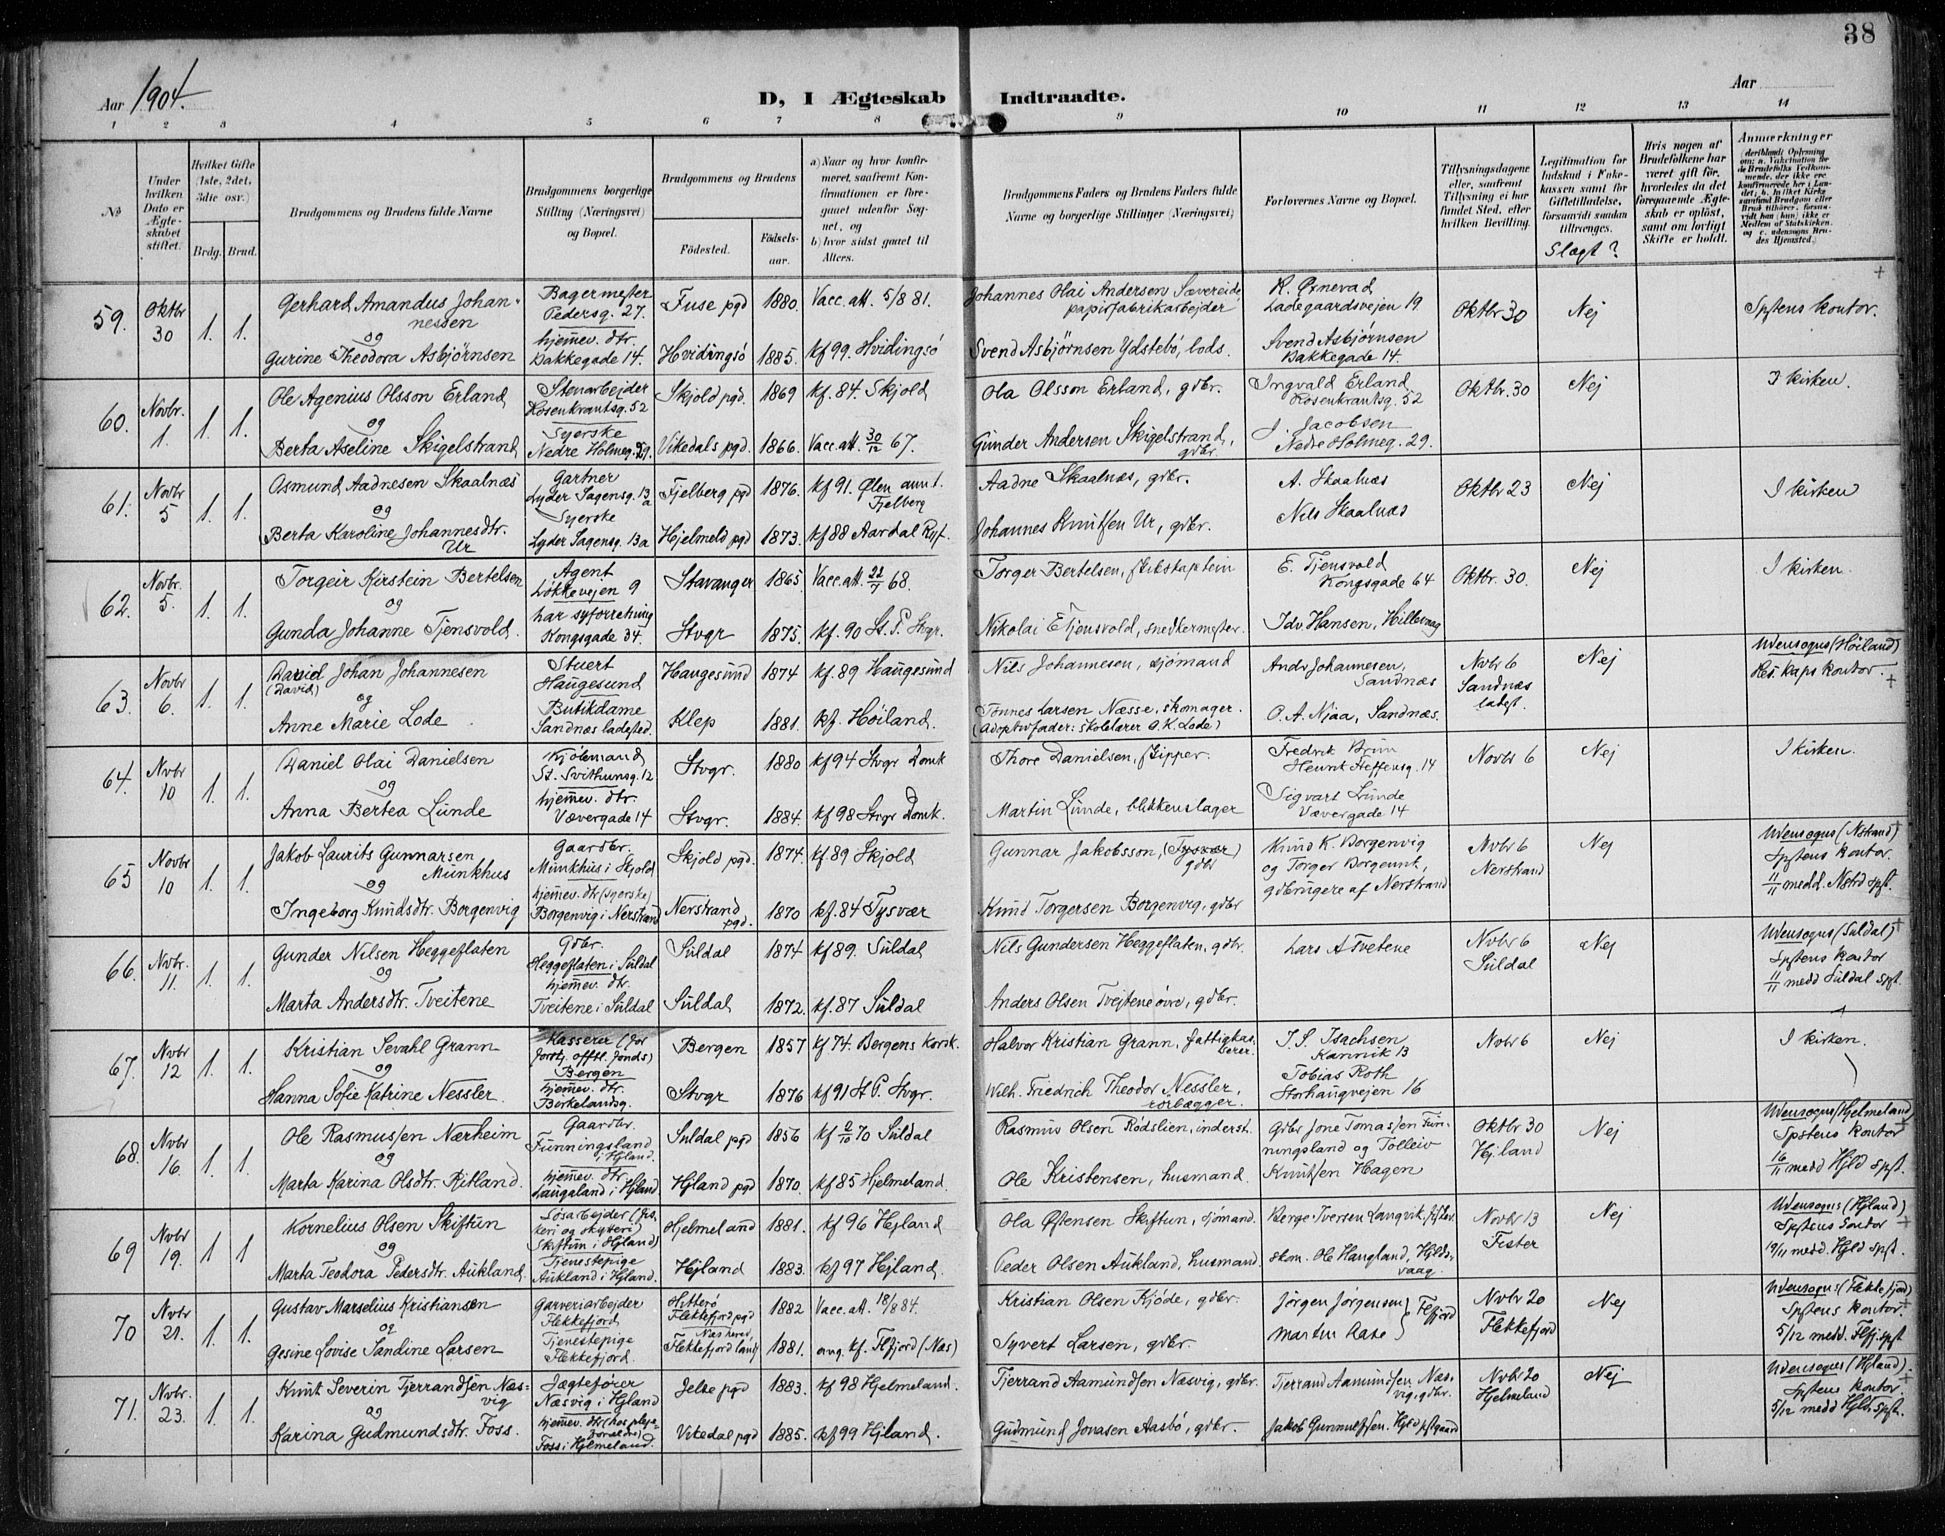 38
Aar 1904.
D, I Ægteskab Indtraadte.
Aar
1 2 3 4 5 6 7 8 9 10 11 12 13 14
No
Under hvilken Dato er Ægteskabet stiftet.
Hvilket Gifte (1ste, 2det, 3die osv.)
Brdg. Brud.
Brudgommens og Brudens fulde Navne
Brudgommens borgerlige Stilling (Næringsvei) og Bopæl.
Brudgommens og Brudens
Fødested. Fødselsaar.
a) Naar og hvor konfirmeret, saafremt Konfirmationen er foregaaet udenfor Sognet, og
b) hvor sidst gaaet til Alters.
Brudgommens Faders og Brudens Faders fulde Navne og borgerlige Stillinger (Næringsvei)
Forlovernes Navne og Bopæl.
Tillysningsdagene eller, saafremt Tillysning ei har fundet Sted, efter hvilken Bevilling.
Legitimation for Indskud i Enkekassen samt for Giftetilladelse, forsaavidt saadan tiltrænges.
Slægt?
Hvis nogen af Brudefolkene har været gift før, hvorledes da det foregaaende Ægteskab er opløst, samt om lovligt Skifte er holdt.
Anmærkninger
59. Oktbr 30 1. 1. Gerhard Amandus Johannessen Bagermester Pedersg. 27. Fuse pgd 1880. Vacc. att. 5/8 81. Johannes Olai Andersen Sævereide papirfabrikarbejder R. Øxnevad Ladegaardsvejen 19 Oktbr 30 Nej Spstens kontor.
og
Gurine Theodora Asbjørnsen hjemev. dtr. Bakkegade 14. Hvidingsø 1885. kf 99. Hvidingsø Svend Asbjørnsen Ydstebø, lods. Svend Asbjørnsen Bakkegade 14.
60. Novbr. 1. 1. 1. Ole Agenius Olsson Erland Stenarbejder Rosenkrantsg. 52 Skjold pgd. 1869 kf. 84. Skjold Ola Olsson Erland, gdbr. Ingvald Erland Rosenkrantsg. 52 Oktbr. 30 Nej I kirken.
og
Berta Aseline Skigelstrand Syerske Nedre Holmeg. 29. Vikedals pgd. 1866. Vacc. att. 30/12 67. Gunder Andersen Skigelstrand, gdbr. J. Jacobsen Nedre Holmeg. 29.
61. Novbr 5 1. 1. Asmund Aadnesen Skaalnæs Gartner Lyder Sagensg. 13a Fjelberg pgd 1876. kf 91. Ølen annx. Fjelberg Aadne Skaalnæs, gdbr. A. Skaalnæs Oktbr 23 Nej I kirken
og
Berta Karoline Johannesdtr. Ur Syerske Lyder Sagensg. 13a Hjelmeld pgd 1873. kf 88 Aardal Ryf. Johannes Knutsen Ur, gdbr. Nils Skaalnæs
62. Novbr. 5. 1. 1. Torgeir Kirstein Bertelsen Agent Løkkevejen 9 Stavanger 1865 Vacc. att. 68. Torger Bertelsen, skibskaptein E. Tjensvold Kongsgade 64 Oktbr. 30. Nej I kirken.
og
Gunda Johanne Tjensvold. har syforretning Kongsgade 34. Stvgr 1875. kf. 90 St. P. Stvgr. Nikolai E Tjensvold, snedkermester. Hansen, Hillevaag
63. Novbr 6. 1. 1. David Johan Johannesen (David) Stuert Haugesund Haugesund 1874 kf. 89 Haugesund Nils Johannesen, sjømand Andr Johannesen, Sandnæs Novbr 6 Sandnæs ladest. Nej Udensogns (Høiland) Res. kaps kontor. +
og
Anne Marie Lode Butikdame Sandnæs ladested. Klep 1881. kf. Høiland. Tønnes Larsen Næsse, skomager. (Adoptivfader: skolelærer O. K. Lode) O. A. Njaa, Sandnæs.
64. Nvbr 10 1. 1. Daniel Olai Danielsen Kjølemand St. Svithunsg. 12 Stvgr. 1880 kf 94 Stvgr Domk Thore Danielsen, skipper. Fredrik Brun 14 Novbr 6 Nej I kirken.
og
Anna Bertea Lunde hjemev. dtr. Vævergade 14 Stvgr. 1884. kf 98 Stvgr Domk. Martin Lunde, blikkenslager Sigvart Lunde Vævergade 14
65 Novbr 10 1. 1. Jakob Laurits Gunnarsen Munkhus Gaardbr. Munkhus i Skjold Skjold pgd. 1874. kf 89 Skjold Gunnar Jakobsson, (Tysvær) gdbr Knud K. Borgenvig og Torger Borgenvig, gdbrugere af Nerstrand Nvbr 6 Nerstrand Nej Udensogns (Nstrand) + Spstens kontor. 11/11 medd. Nstrd spst.
og
Ingeborg Knudsdtr. Borgenvig hjemev. dtr (syerske) Borgenvig i Nerstrand Nerstrand pgd. 1870 kf. 84 Tysvær Knud Torgersen Borgenvig, gdbr
66. Nvbr. 11. 1. 1. Gunder Nilsen Heggeflaten Gdbr. Heggeflaten i Suldal Suldal 1874 kf 89. Suldal Nils Gundersen Heggeflaten, gdbr. Lars A Tvetene Nvbr 6 Suldal Nej Udensogns (Suldal) + Spstens kontor 11/11 medd Suldal spst.
og
Marta Andersdtr. Tveitene hjemev. dtr. Tveitene i Suldal Suldal 1872. kf. 87 Suldal Anders Olsen Tvejtene øvre, gdbr.
67. Nvbr 12 1. 1. Kristian Sevahl Grann Kasserer (for forskj. offtl. fonds) Bergen Bergen 1857 kf 74. Bergens korsk. Halvor Kristian Grann, fattigkasserer. I. S. Isachsen Kannik 13 Nvbr 6 Nej I kirken.
og
Hanna Sofie Katrine Nessler. hjemev. dtr. Birkelandsg. Stvgr 1876 kf 91 St P. Stvgr. Wilh. Friedrich Theodor Nessler, rørlægger. Tobias Roth Storhaugvejen 16
68. Nvbr 16. 1. 1. Ole Rasmussen Nærheim Gaardbr. Funningsland i Hjland. Suldal pgd 1856 kf 2/10 70 Suldal Rasmus Olsen Rødslien, inderst. Gdbr Jone Tomassen Funningsland og Tolleiv Knutsen Hagen Oktbr 30 Hjland Nej Udensogns (Hjelmeland) + Spstens kontor 16/11 medd Hjld spst.
og
Marta Karina Olsdtr. Ritland. hjemev. dtr Laugaland i Hjland Hjland pgd 1870. kf 85 Hjelmeland. Ole Kristensen, husmand.
69 Nvbr 19. 1. 1 Kornelius Olsen Skiftun Løsarbejder (fiskeri og skyteri) Skiftun i Hjland Hjelmeland 1881. kf 96 Hjland Ola Østensen Skiftun, sjømand. Berge Iversen Langvik, fisker. Novbr 13 Fister Nej Udensogns (Hjland) Spstens kontor + 19/11 medd Hjld spst.
og
Marta Teodora Pedersdtr. Aukland. Tjenestepige Aukland i Hjland. Hjland 1883. kf 97 Hjland. Peder Olsen Aukland, husmand skom. Ole Haugland, Hjldsvaag.
70 Nvbr 21. 1. 1. Gustav Marselius Kristiansen Garveriarbejder Flekkefjord Hitterø Flekkefjord pgd 1882 Vacc. att. 18/8 84. Kristian Olsen Kjøde, gdbr. Jørgen Jørgensen Marten Aase } Flfjord Nvbr 20 Flekkefjord Nej Udensogns (Flekkefjord) + Spstens kontor. 5/12 medd. Flfj. spst
og
Gesine Lovise Sandine Larsen Tjenestepige Flekkefjord. Næs herred Flekkefjord lands. 1881. ang. kf. Flfjord (Næs) Syvert Larsen, gdbr.
71. Nvbr. 23. 1. 1. Knut Severin Tjerrandsen Næsvig Jægtefører Næsvig i Hjland Jelse pgd 1883. kf 98 Hjelmeland. Tjerrand Aamundsen Næsvig, gdbr. Tjerrand Aamundsen Næsvig, gdbr. Nvbr 20 Hjelmeland Nej Udensogns (Hjland) + Spstens kontor. 5/12 medd Hjld. spst.
og
Karina Gudmundsdtr. Foss. hjemev. dtr (hos plejeforældre) Foss i Hjelmeland. Vikedal pgd 1885. kf 99 Hjland. Gudmund Jonasen Aasbø, gdbr. Jakob Gunnulfsen. Hjld pstgaard